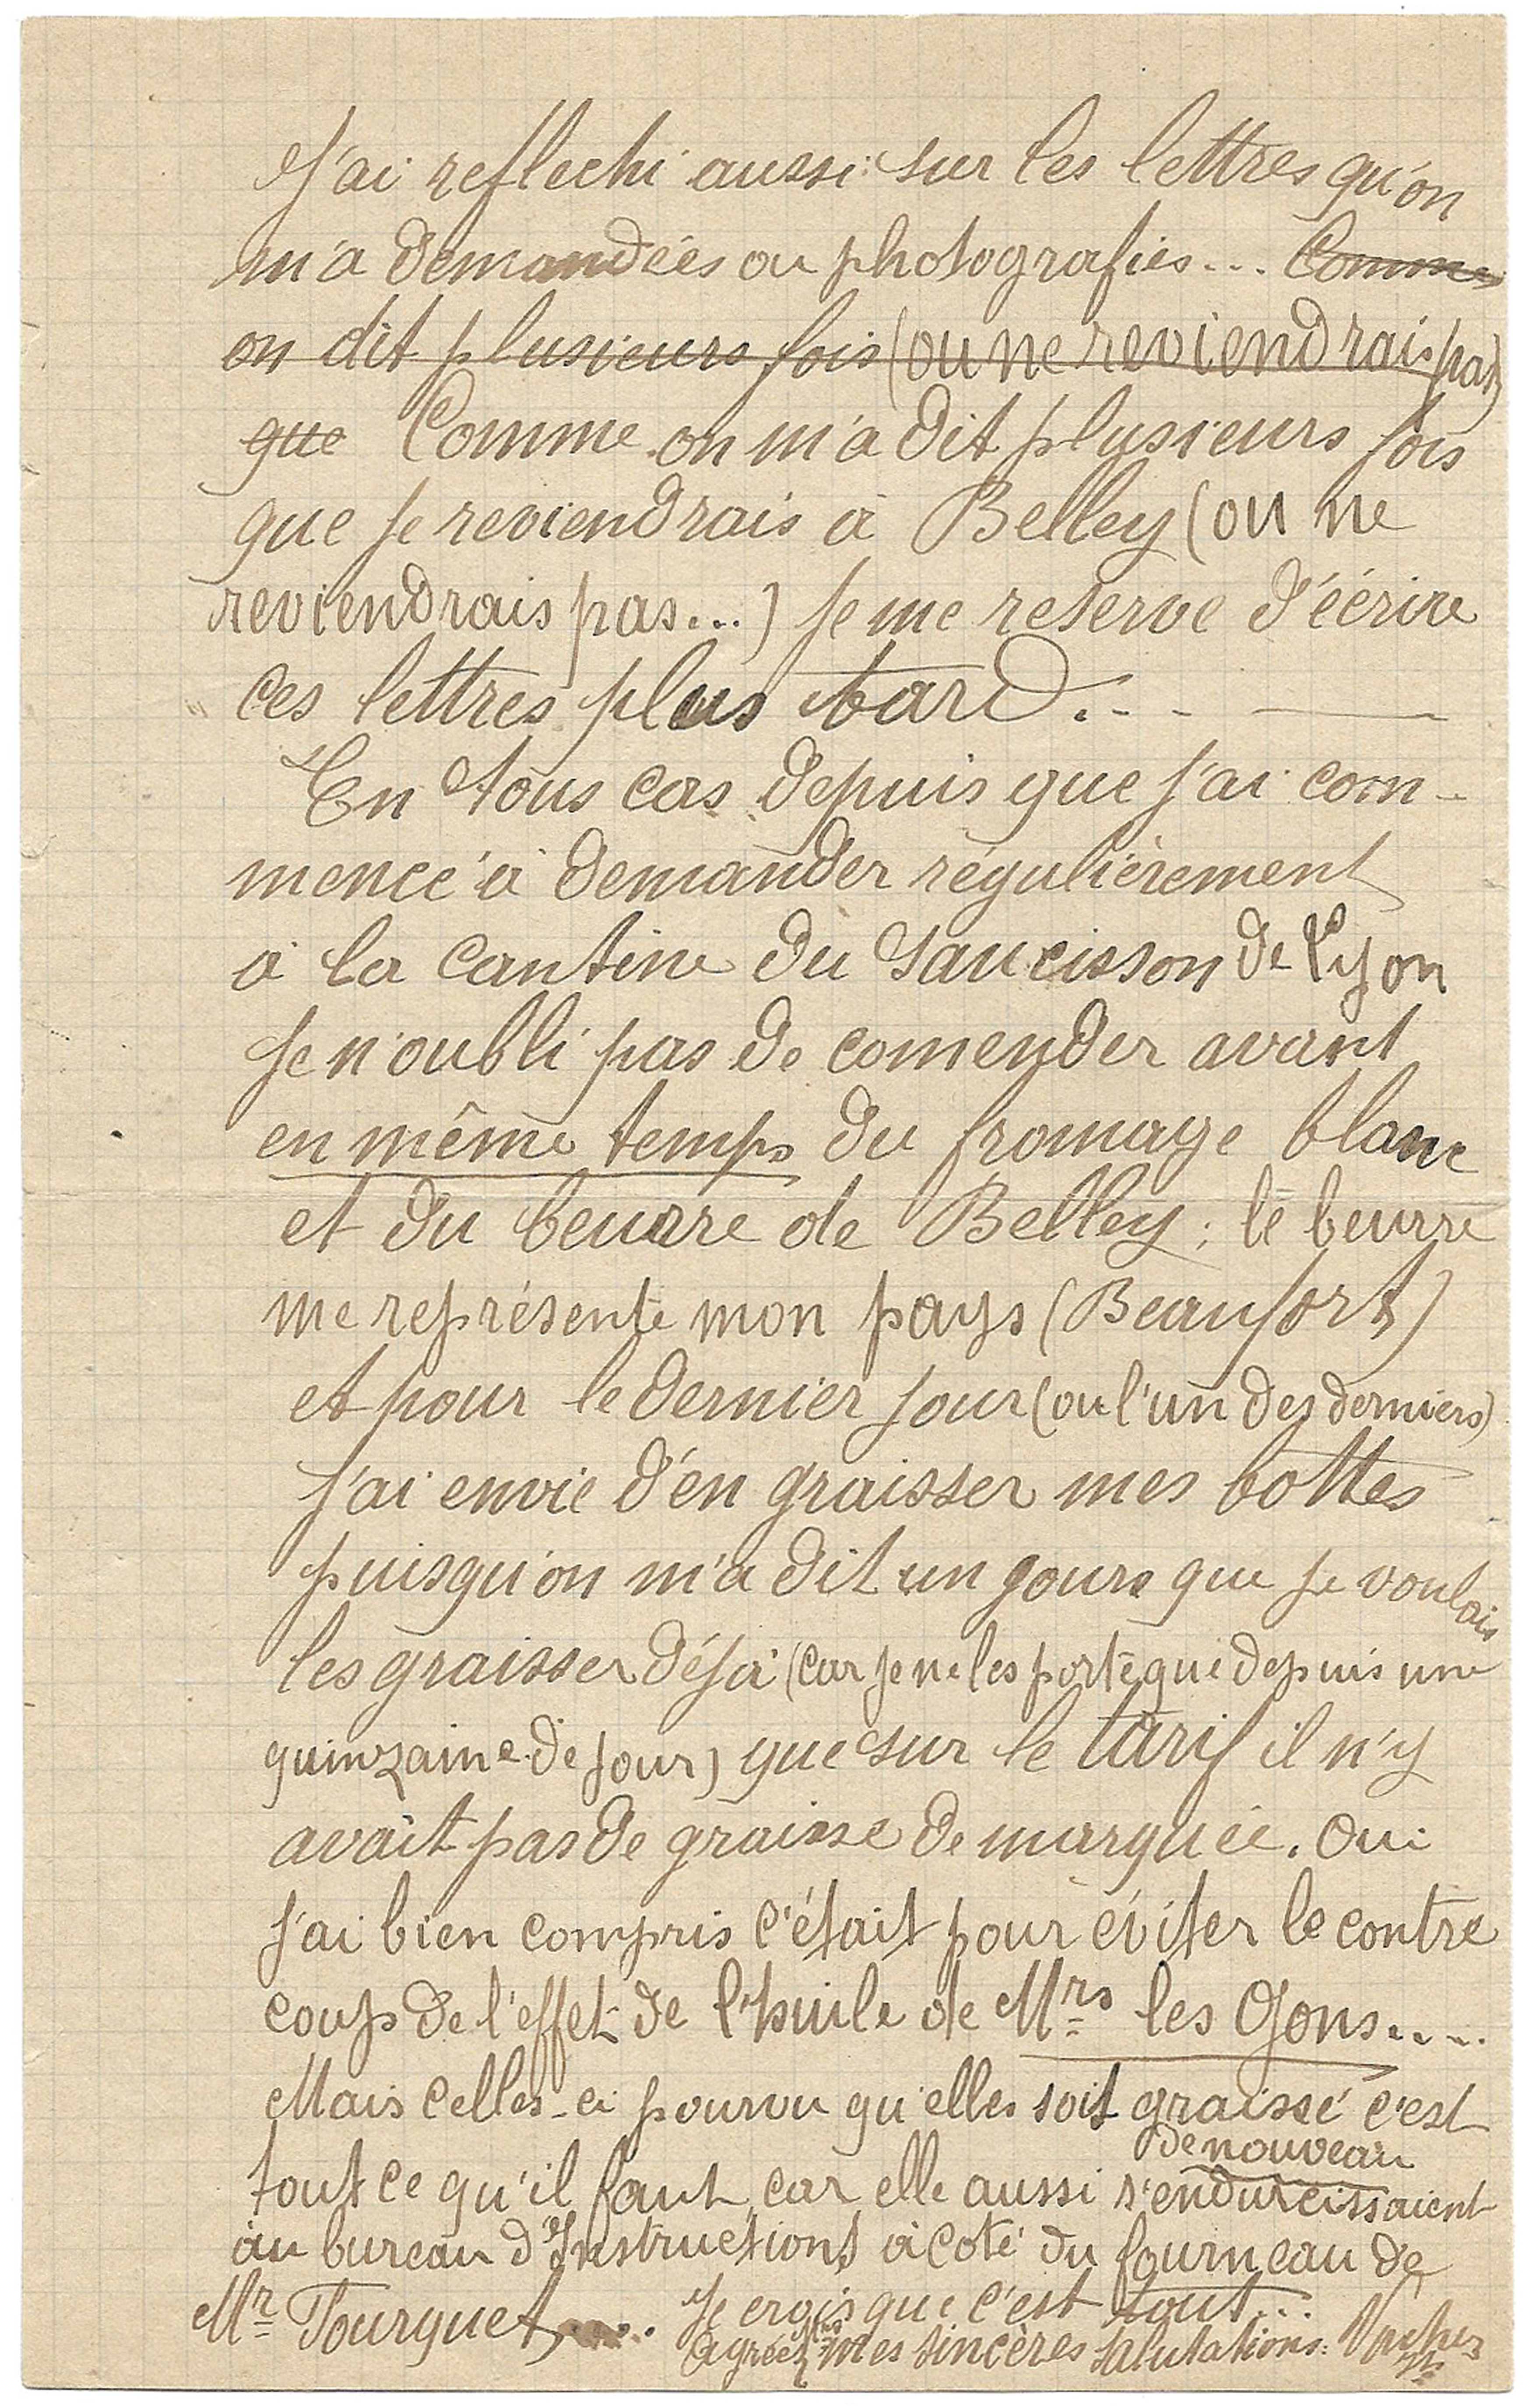 J'ai reflechi aussi sur les lettres qu'on
m'a demandées ou photografies... Comme
on dit plusieurs fois (ou ne reviendrais pas)
que Comme on m'a dit plusieurs fois
que je reviendrais à Belley (ou ne
reviendrais pas...) je me reserve d'éérire
ces lettres plus tard... —
En tous cas depuis que j'ai com-
mencé à demander régulièrement
à la cantine du saucisson de Lyon
je n'oubli pas de comender avant
en même temps du fromage blanc
et du beurre de Belley; le beurre
me représente mon pays (Beaufort)
et pour le dernier jour (ou l'un des derniers)
j'ai envie d'en graisser mes bottes
puisqu'on m'a dit un jours que je voulais
les graisser déjà (car je ne les porte que depuis une
quinzaine de jour) que sur le tarif il n'y
avait pas de graisse de marquée. Oui
j'ai bien compris c'était pour éviter le contre
coup de l'effet de l'huile de Mrs les Gons....
Mais celles-ci pourvu qu'elles soit graissé c'est
tout ce qu'il faut car elle aussi s'endurcissaient de nouveau
au bureau d'Instructions à coté du fourneau de
Mr Tourquet.... Je crois que c'est tout...
Agréez mes sincères salutations. Vacher